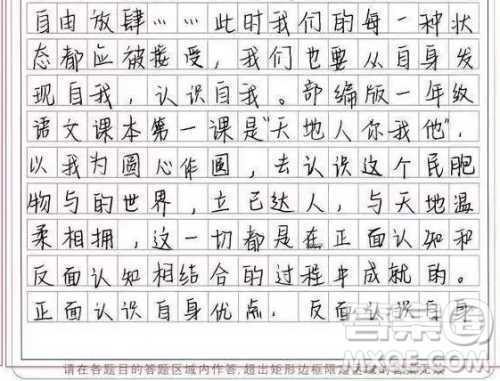 自由放肆……此时我们的每一种状
态都应被接受,我们也要从自身发
现自我,认识自我。部编版一年级
语文课本第一课是“天地人你我他”,
以我为圆心作圆,去认识这个民胞
物与的世界,立己达人,与天地温
柔相拥,这一切都是在正面认知和
反面认知相结合的过程中成就的。
正面认识自身优点,反面认识自身
请在各题目的答题区域内作答,超出矩形边框限定区域的答案无效
MXQE.COM